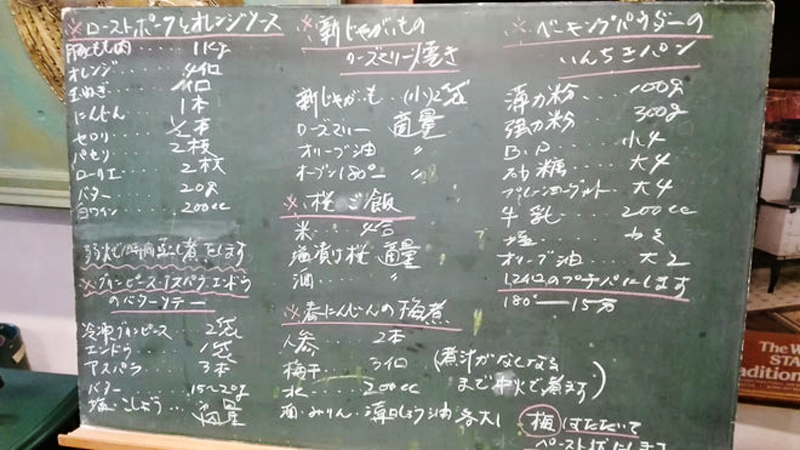 ※ローストポークとオレンジソース
豚もも肉……1Kg
オレンジ……4個
玉ねぎ……1個
にんじん……1本
セロリ……1/2本
パセリ……2枝
ローリエ……2枚
バター……20g
白ワイン……200cc
弱火で1時間蒸し煮をします
※グリンピース・アスパラ・エンドウ
のバターソテー
冷凍グリンピース……2袋
エンドウ……1袋
アスパラ……3本
バター……15〜20g
塩・こしょう……適量
※新じゃがいもの
ローズマリー焼き
新じゃがいも…(小)2袋
ローズマリー……適量
オリーブ油……〃
オーブン180°ー
※桜ご飯
米……4合
塩漬け桜…適量
酒……〃
※春にんじんの梅煮
人参……2本
梅干……3個
水……200cc
酒・みりん・薄口しょう油 各大1
(煮汁がなくなる
まで中火で煮ます)
梅はたたいて
ペースト状にします
※ベーキングパウダーの
いんちきパン
薄力粉……100g
強力粉……300g
B.P……小4
砂糖……大4
プレーンヨーグルト…大4
牛乳……200cc
塩……
オリーブ油……大2
12個のプチパンにします
180°ー15分
The W
STA